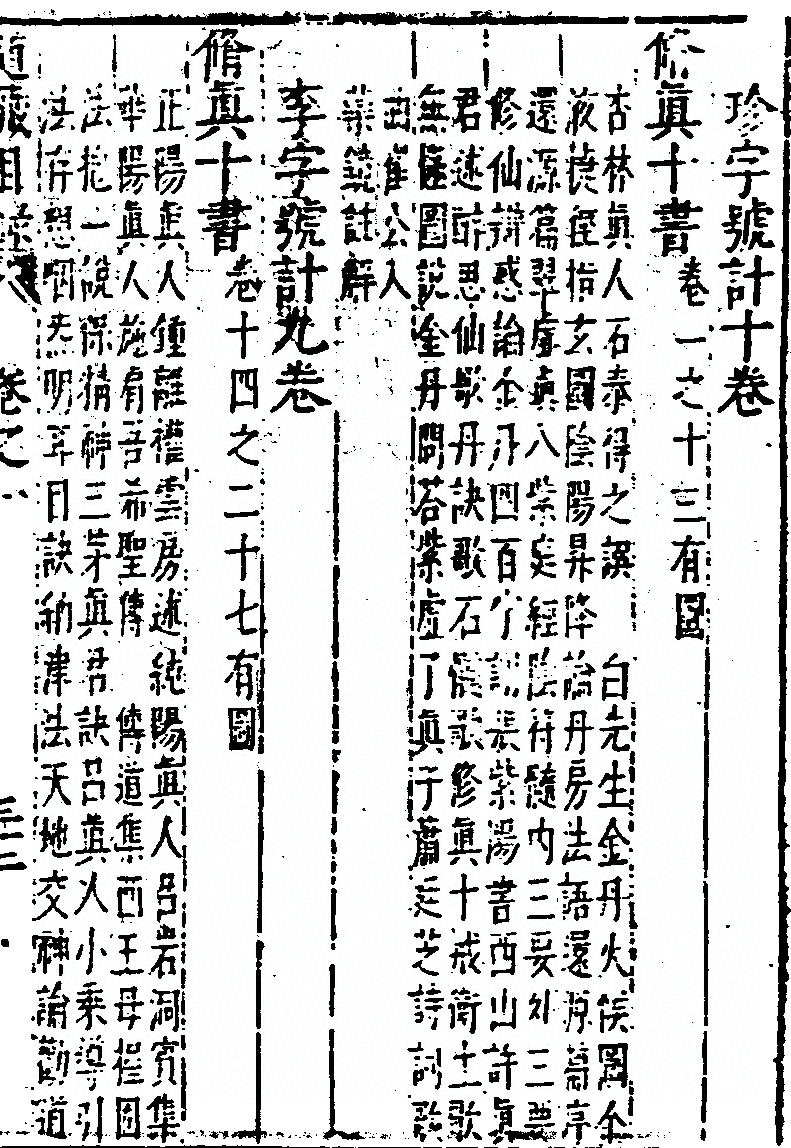 珍字號計十卷
脩眞十書卷一之十三有圖
杏林眞人石泰得之譔　白先生金丹火候圖金
液捷徑指玄圖陰陽昇降論丹房法語還源篇亭
還源篇翠虛眞人紫庭經陰符髓內三要外三要
修仙辯惑論金丹四百字詋張紫陽書西山許眞
君述醉思仙歌丹訣歌石僊歌修眞十戒衛士歌
無極圖說金丹問荅紫虛了眞子蕭廷芝詩詞歌
曲崔公入
藥鏡註解
李字號計九卷
脩眞十書卷十四之二十七有圖
正陽眞人鍾離權雲房述純陽眞人呂岩洞賓集
華陽眞人施肩吾希聖傳　傳道集西王母握固
法抱一說保精神三茅眞君訣呂眞人小乘導引
法存想咽炁明耳目訣納津法天地交神論勸道
道藏目　　卷之
三十二